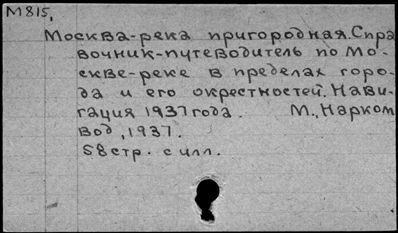 М815,
Москва-река пригородная. Спра
вочник-путеводитель по Мо-
скве-реке в пределах горо-
да и его окрестностей. Нави-
гация 1937 года. М., Нарком
вод, 1937.
58 стр. с илл.